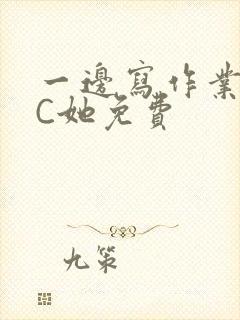 一邊寫作業
C她免費
九策